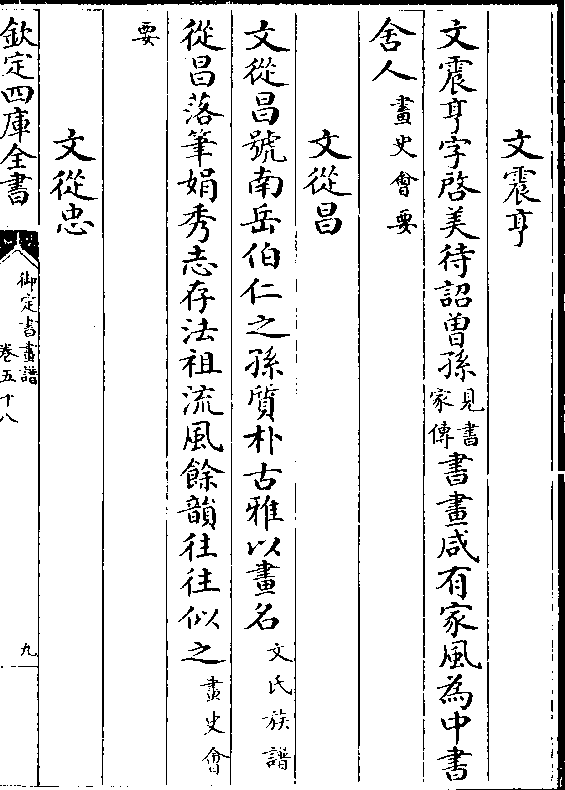 文震亨
文震亨字啓美待詔曽孫見書家傳書畫咸有家風為中書
舍人畫史會要
文從昌
文從昌號南岳伯仁之孫質朴古雅以畫名文氏族譜
從昌落筆娟秀志存法祖流風餘韻往往似之畫史會
要
文從忠
欽定四庫全書
御定書畫譜
卷五十八
九